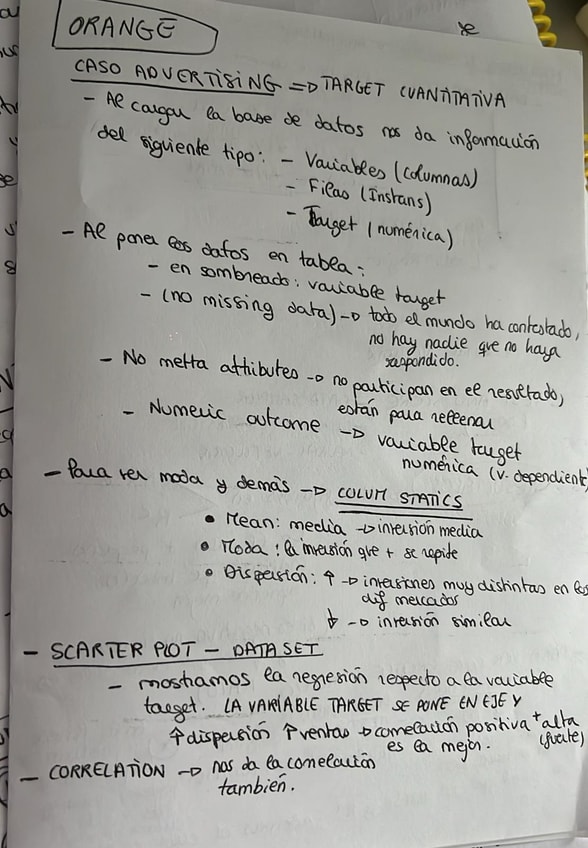 ORANGE
CASO ADVERTISING => TARGET CUANTITATIVA
- Al cargar la base de datos nos da información
del siguiente tipo: - Variables (columnas)
- Filas (Instans)
- Target (numérica)
- Al poner los datos en tabla:
- en sombreado: variable target
- (no missing data) → todo el mundo ha contestado,
no hay nadie que no haya
respondido.
- No metta attributes → no participan en el resultado,
están para rellenar
- Numeric outcome → variable target
numérica (v. dependiente)
- Para ver moda y demás → COLUM STATICS
• Mean: media → inversión media
• Moda: la inversión que + se repite
• Dispersión: ↑ → inversiones muy distintas en los
dif mercados
↓ → inversión similar
- SCARTER PLOT - DATA SET
- mostramos la regresión respecto a la variable
target. LA VARIABLE TARGET SE PONE EN EJE Y
↑ dispersión ↑ ventas → correlación positiva + alta
es la mejor. (fuerte)
- CORRELATION → nos da la correlación
también.